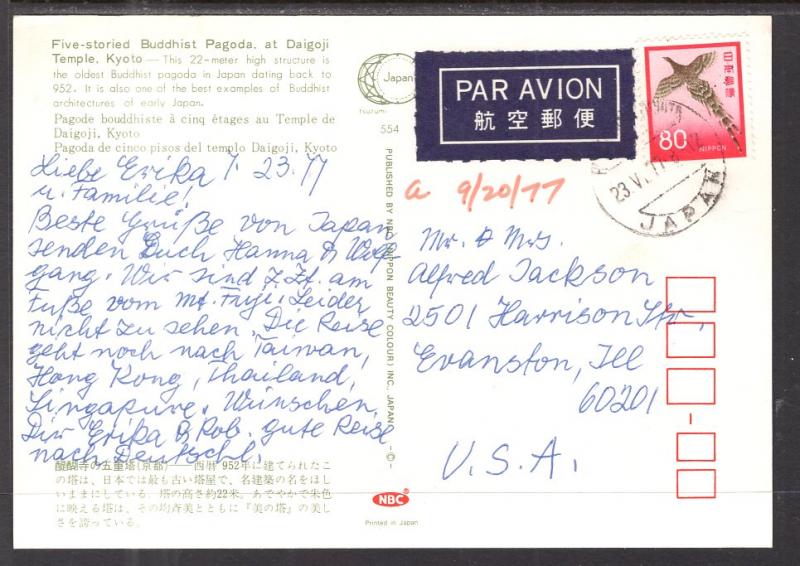 Five-storied Buddhist Pagoda, at Daigoji
Temple, Kyoto — This 22-meter high structure is
the oldest Buddhist pagoda in Japan dating back to
952. It is also one of the best examples of Buddhist
architectures of early Japan.
Pagode bouddhiste à cinq êtages au Temple de
Daigoji, Kyoto
Pagoda de cinco pisos del templo Daigoji, Kyoto
Liebe Erika 7. 23. 77
u. Familie!
Beste Grüße von Japan
senden Euch Hanna & Wolf
gang. Wir sind z. Zt. am
Fuße vom Mt. Fuji. Leider
nicht zu sehen. Die Reise
geht noch nach Taiwan,
Hong Kong, Thailand,
Singapure. Wünschen
Dir Erika & Rob. gute Reise
nach Deutschl.
醍醐寺の五重塔(京都)——西暦952年に建てられたこ
の塔は、日本では最も古い塔屋で、名建築の名をほし
いままにしている。塔の高さ約22米。あでやかで朱色
に映える塔は、その均斉美とともに『美の塔』の美し
さを誇っている。
Japan
tsurumi
554
PUBLISHED BY NBC (NIPPON BEAUTY COLOUR) INC. JAPAN
-©-
NBC
Printed in Japan
PAR AVION
航空郵便
日本郵便
80
NIPPON
23.V. 77
JAPAN
a 9/20/77
Mr. & Mrs.
Alfred Jackson
2501 Harrison Str.,
Evanston, Ill
60201
U.S.A.